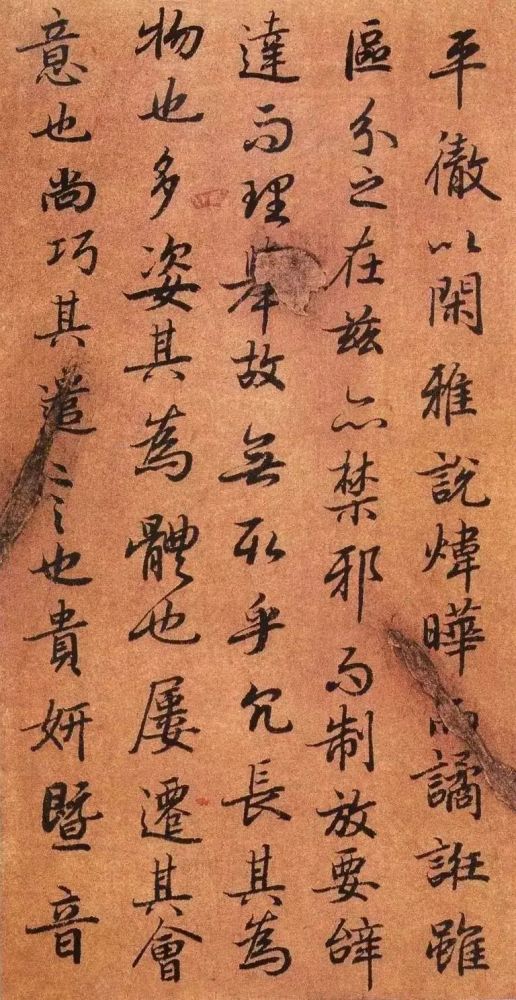 平徹以閑雅說煒曄而譎誑雖
區分之在茲亦禁邪而制放要辭
達而理舉故無取乎冗長其為
物也多姿其為體也屢遷其會
意也尚巧其遣言也貴妍暨音